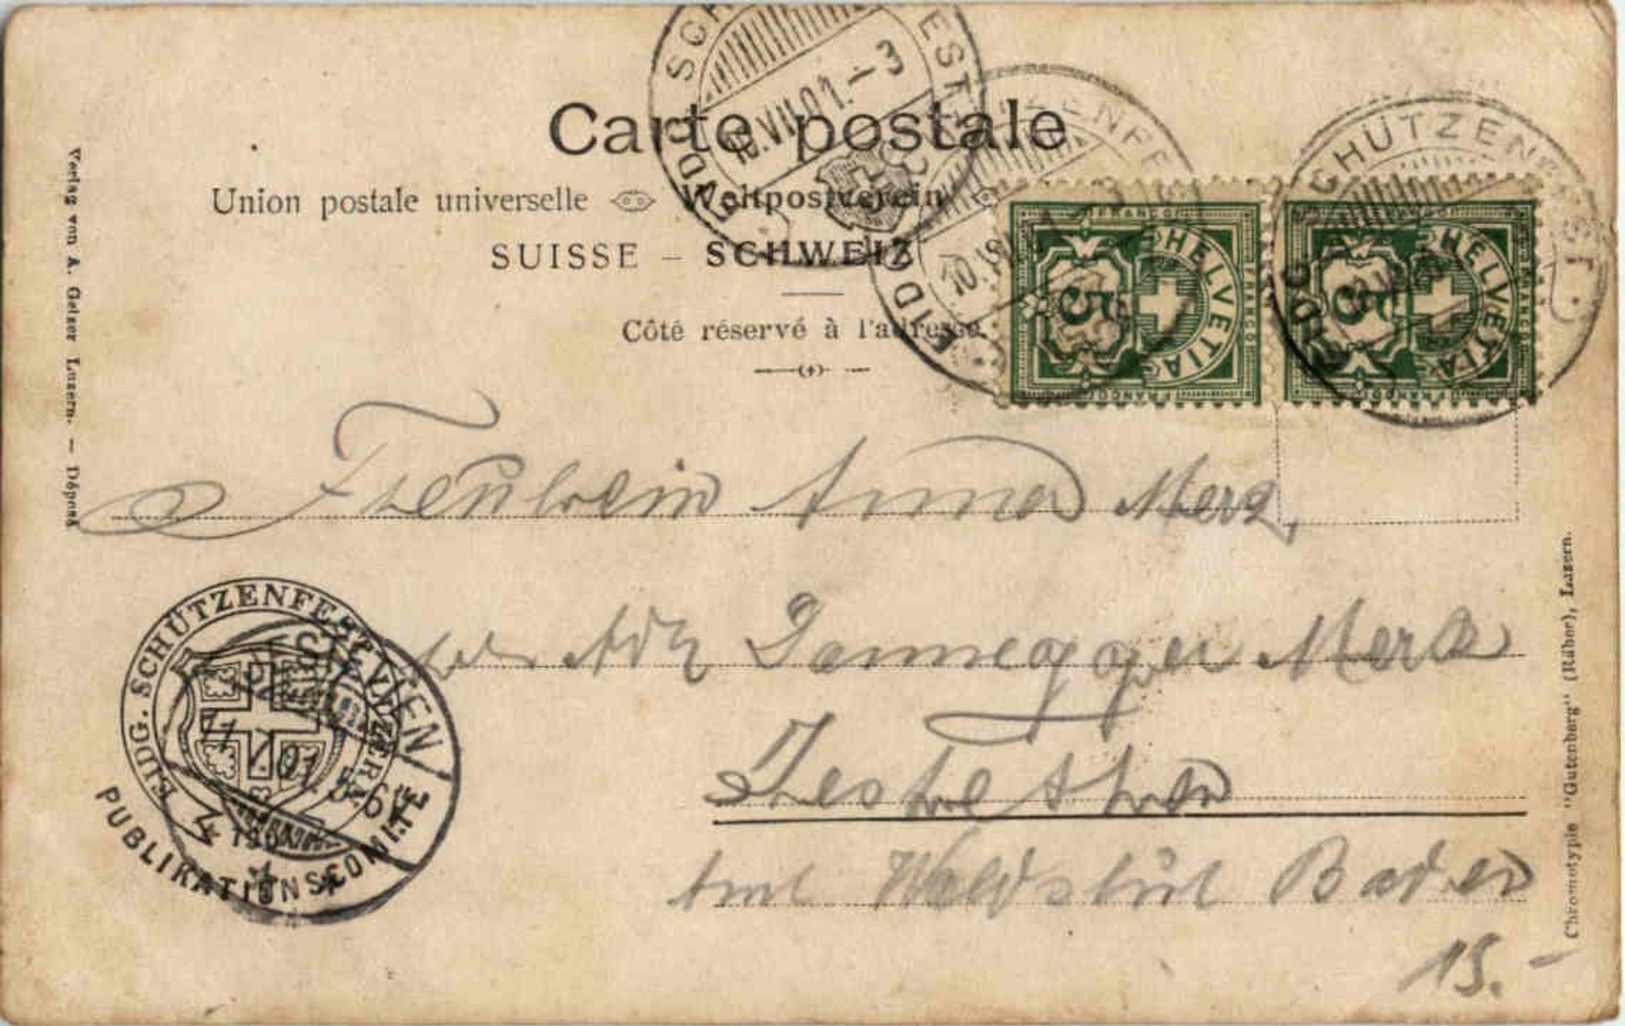 Carte postale
Union postale universelle Weltpostverein
SUISSE – SCHWEIZ
Côté réservé à l'adresse.
Verlag von A. Gelzer Luzern. – Déposé
EIDG. SCHÜTZENFEST
10.VII.01.–3
EIDG. SCHÜTZENFEST
10.VII.01
FRANCO
5
HELVETIA
EIDG. SCHÜTZENFEST
FRANCO
5
HELVETIA
Fräulein Anna Merz,
Adr Dannegger Merk
Jestetten
Amt Waldshut Baden
15.–
EIDG. SCHÜTZENFEST LUZERN
JESTETTEN
PUBLIKATIONSCOMITÉ
Chromotypie "Gutenberg" (Räber), Luzern.